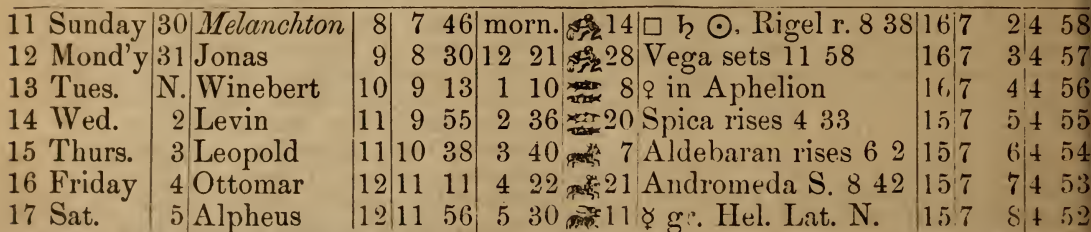 11 Sunday 30 Melanchton 8 7 46 morn. 14 □ ♄ ☉, Rigel r. 8 38 16 7 2 4 58
12 Mond'y 31 Jonas 9 8 30 12 21 28 Vega sets 11 58 16 7 3 4 57
13 Tues. N. Winebert 10 9 13 1 10 8 ♀ in Aphelion 16 7 4 4 56
14 Wed. 2 Levin 11 9 55 2 36 20 Spica rises 4 33 15 7 5 4 55
15 Thurs. 3 Leopold 11 10 38 3 40 7 Aldebaran rises 6 2 15 7 6 4 54
16 Friday 4 Ottomar 12 11 11 4 22 21 Andromeda S. 8 42 15 7 7 4 53
17 Sat. 5 Alpheus 12 11 56 5 30 11 ☿ gr. Hel. Lat. N. 15 7 8 4 52